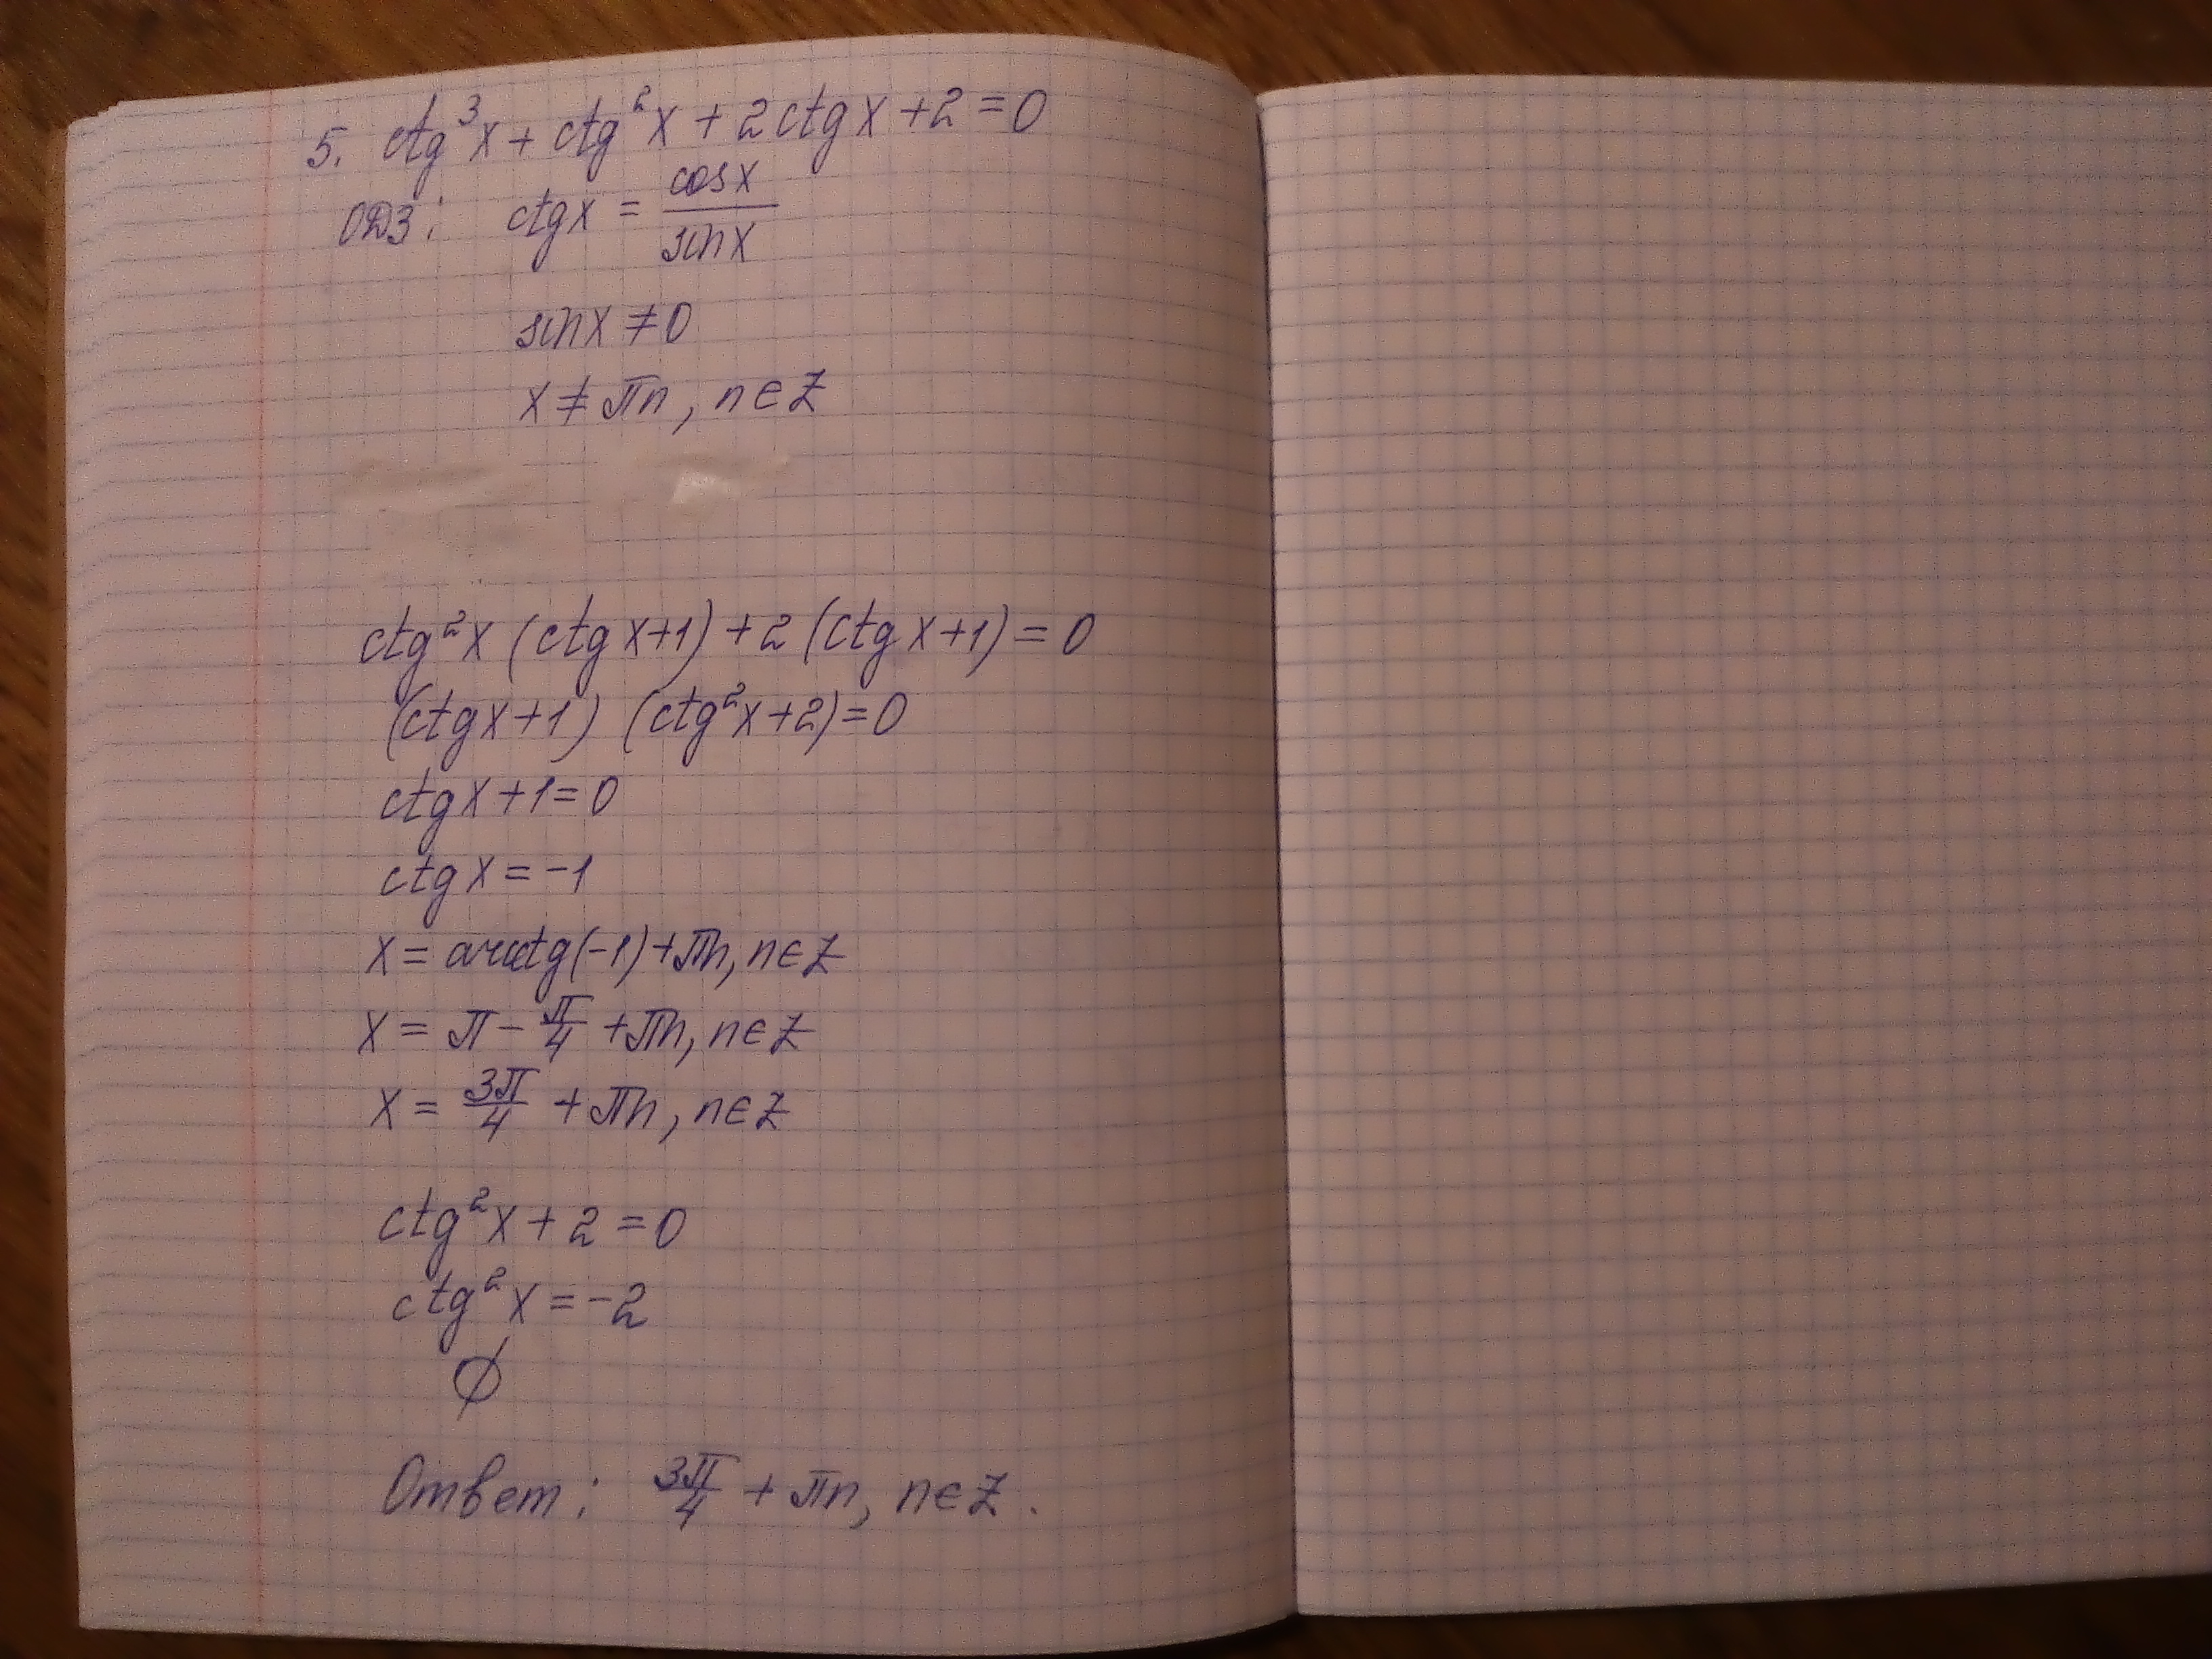 5. ctg³x + ctg²x + 2ctgx + 2 = 0
ОДЗ: ctgx = cosx/sinx
sinx ≠ 0
x ≠ πn, n∈Z
ctg²x (ctgx+1) + 2 (ctgx+1) = 0
(ctgx+1) (ctg²x+2) = 0
ctgx + 1 = 0
ctgx = -1
x = arcctg(-1) + πn, n∈Z
x = π - π/4 + πn, n∈Z
x = 3π/4 + πn, n∈Z
ctg²x + 2 = 0
ctg²x = -2
∅
Ответ: 3π/4 + πn, n∈Z.